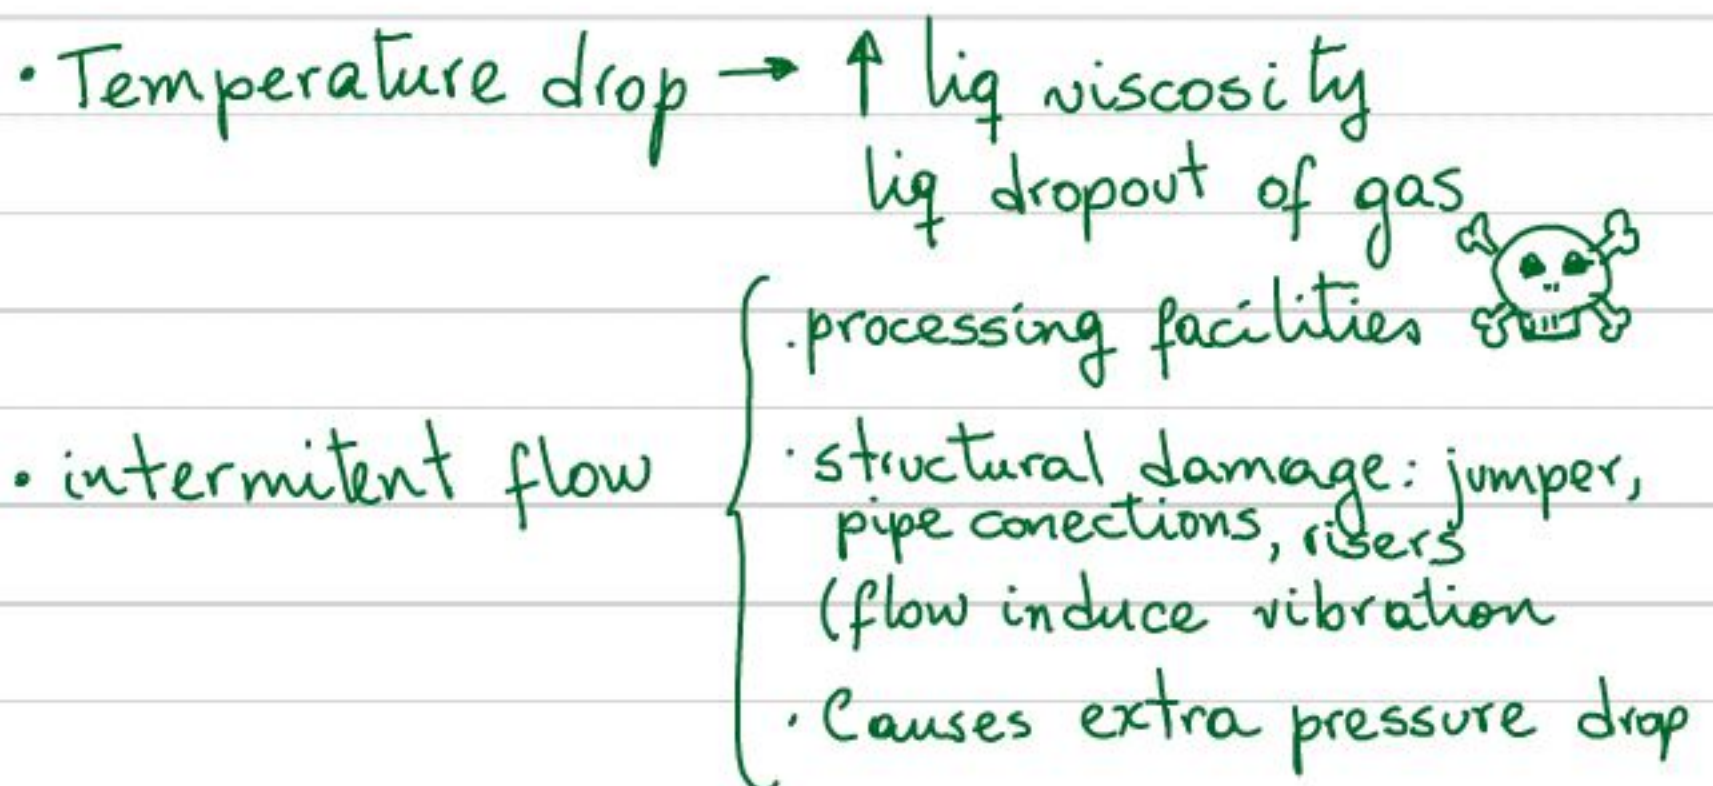 · Temperature drop → ↑ liq viscosity
liq dropout of gas
· processing facilities
· intermitent flow
· structural damage: jumper,
pipe conections, risers
(flow induce vibration
· Causes extra pressure drop